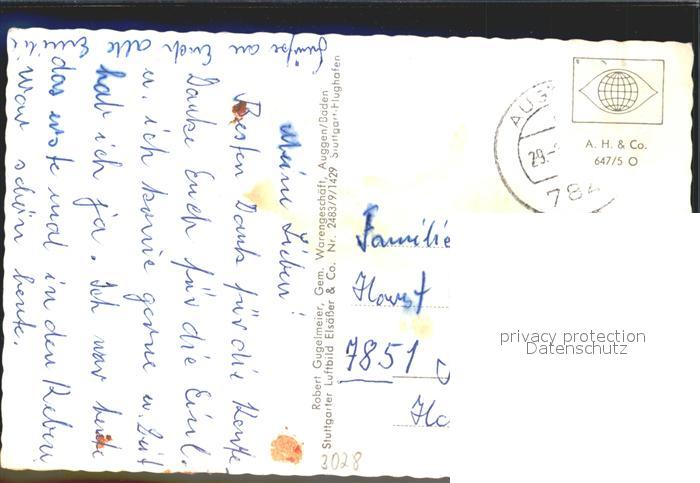 Meine Lieben!
Besten Dank für die Karte.
Danke Euch für die Einl.
u. ich komme gerne u. Zeit
hab ich ja. Ich war heute
das erste mal in den Reben
war schön heute.
Grüße an Euch alle
Robert Gugelmeier, Gem. Warengeschäft, Auggen/Baden
Stuttgarter Luftbild Elsäßer & Co. Nr. 2483/9/1429 Stuttgart-Flughafen
A. H. & Co.
647/5 O
784
Familie
Horst
7851
3028
privacy protection
Datenschutz